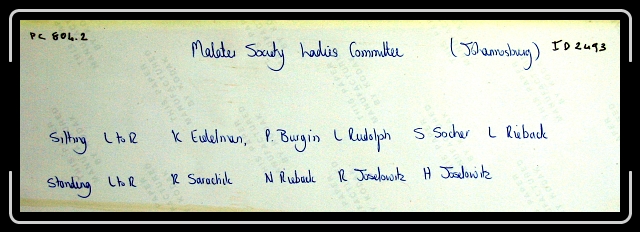 PC 804.2
Malater Society Ladies Committee (Johannesburg) ID 2493
Sitting L to R K Eidelman, P. Burgin L Rudolph S Socher L Rieback
Standing L to R R Sarachik N Rieback R Joselowitz H Joselowitz